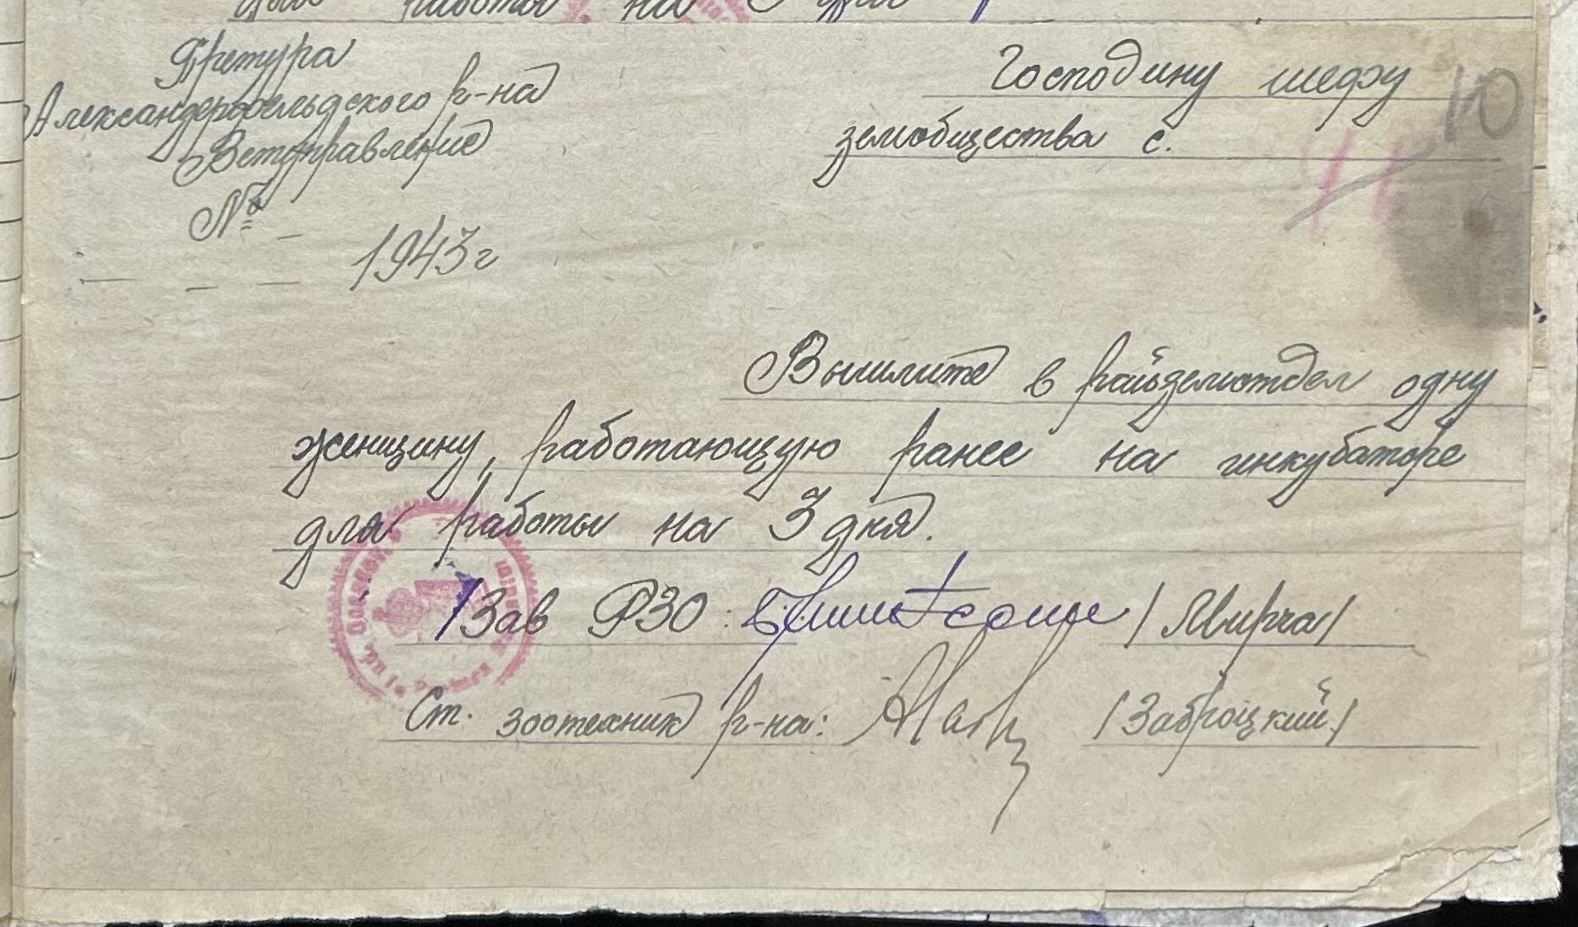 для работы на 3 дня
Претура
Александерфельдского р-на
Ветуправление
№ -
- - - 1943 г
Господину шефу
земобщества с.
10
11
Вышлите в райземотдел одну
женщину, работающую ранее на инкубаторе
для работы на 3 дня.
/Зав РЗО: /Мирча/
Ст. зоотехник р-на: /Заброцкий/